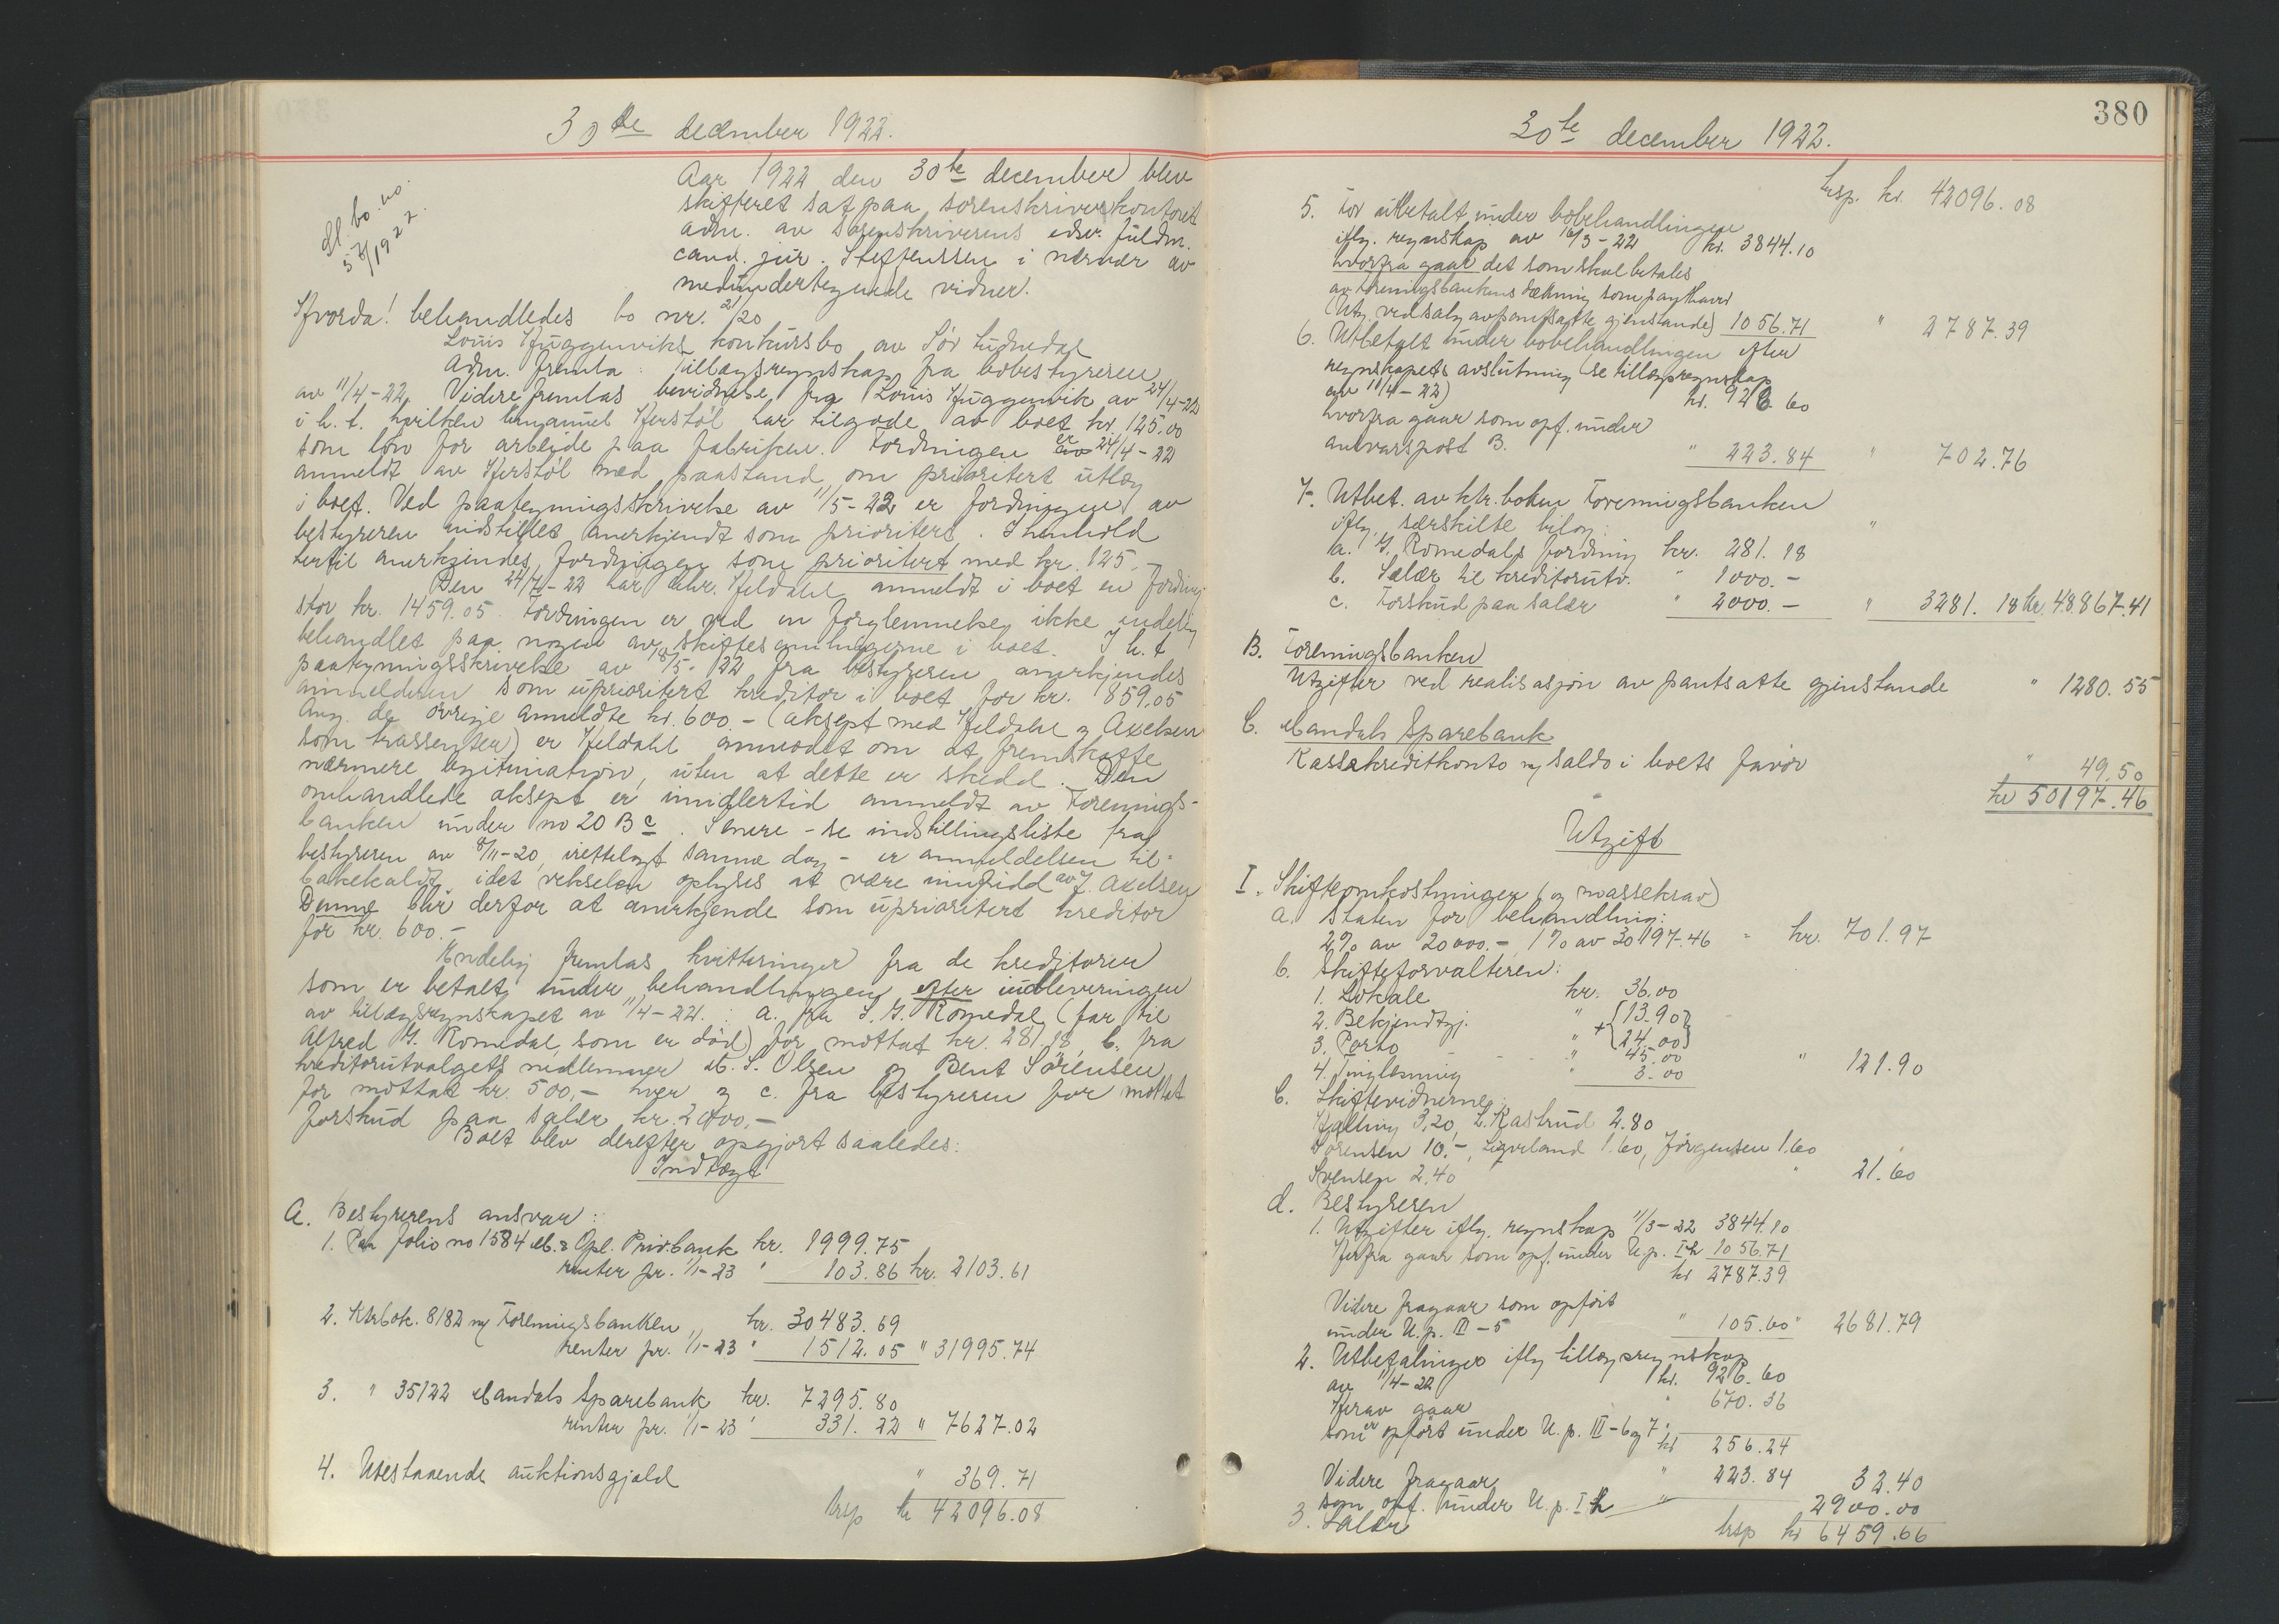 30te december 1922.
dl. bo. no.
57/1922.
Aar 1922 den 30te december blev
skifteret sat paa sorenskriverkontoret
adm. av sorenskriverens edsv. fuldm.
cand. jur. Steffenssen i nærvær av
medundertegnede vidner.
Hvorda! behandledes bo nr. 21/20
Louis Huggenviks konkursbo av Sör Audnedal
Adm. fremla: tillægsregnskap fra bobestyreren
av 11/4-22. Videre fremlas bevidnelse fra Louis Huggenvik av 24/4-22
i h. t. hvilken Emanuel Herstöl har tilgode av boet kr. 125.00
som lön for arbeide paa fabriken. Fordringen er 24/4-22
anmeldt av Herstöl med paastand om prioritert utlæg
i boet. Ved paategningsskrivelse av 11/5-22 er fordringen av
bestyreren indstillet anerkjendt som prioritert. I henhold
hertil anerkjendes fordringen som prioritert med kr. 125.-
Den 24/4-22 har adv. Heldahl anmeldt i boet en fordring
stor kr. 1459.05. Fordringen er ved en forglemmelse ikke endelig
behandlet paa nogen av skiftesamlingerne i boet. I h. t
paategningsskrivelse av 18/5-22 fra bestyreren anerkjendes
anmelderen som uprioritert kreditor i boet for kr. 859,05
Ang. de övrige anmeldte kr. 600.- (aksept med Heldahl og Axelsen
som trassenter) er Heldahl anmodet om at fremskaffe
nærmere legitimation, uten at dette er skedd. Den
omhandlede aksept er imidlertid anmeldt av Forenings-
banken under no 20 Bc. Senere - se indstillingsliste fra
bestyreren av 8/11-20 irettelagt samme dag - er anmeldelsen til-
bakekaldt, idet vekselen oplyses at være innfridd av J. Axelsen
Denne blir derfor at anerkjende som uprioritert kreditor
for kr. 600.-
Endelig fremlas kvitteringer fra de kreditorer
som er betalt under behandlingen efter indleveringen
av tillægsregnskapet av 11/4-22: a. fra S. G. Romedal (far til
Alfred G. Romedal, som er död) for mottat kr. 281.18, b. fra
kreditorutvalgets medlemmer M. S. Olsen og Bent Sörensen
for mottat kr. 500,- hver og c. fra bestyreren for mottat
forskud paa salær kr. 2000.-
Boet blev derefter opgjort saaledes:
Indtægt
A. Bestyrerens ansvar:
1. Paa folio no 1584 M. & Opl. Priv.bank kr. 1999.75
renter pr. 1/1-23 " 103.86 kr. 2103.61
2. Ktrbok. 8182 m/ Foreningsbanken kr. 30483.69
renter pr. 1/1-23 " 1512.05 " 31995.74
3. " 35122 Mandals Sparebank kr. 7295.80
renter pr. 1/1-23 " 331.22 " 7627.02
4. Utestaaende auktionsgjæld " 369.71
trsp kr 42096.08
380
30te december 1922.
trsp. kr. 42096.08
5. For utbetalt under bobehandlingen
iflg. regnskap av 16/3-22 kr. 3844.10
hvorfra gaar det som skal betales
av Foreningsbankens dækning som panthaver
(Utg. ved salg av pantsatte gjenstande) 1056.71 " 2787.39
6. Utbetalt under bobehandlingen efter
regnskapets avslutning (se tillægsregnskap
av 11/4-22) kr. 926.60
hvorfra gaar som opf. under
ansvarspost B. " 223.84 " 702.76
7. Utbet. av ktr. boken Foreningsbanken
iflg. særskilte bilag: "
a. G. Romedals fordring kr. 281.18
b. Salær til kreditorutv. " 1000.-
c. Forskud paa salær " 2000.- " 3281.18 kr. 48867.41
B. Foreningsbanken
Utgifter ved realisasjon av pantsatte gjenstande " 1280.55
C. Mandals Sparebank
Kassakreditkonto m/ saldo i boets favör " 49.50
kr 50197.46
Utgift
I. Skifteomkostninger (og massekrav)
a. Staten for behandling:
2% av 20000.- 1% av 30197.46 = kr. 701.97
b. Skifteforvalteren:
1. Lokale kr. 36.00
2. Bekjendtgj. " {13.90}
3. Porto " + {24.00}
" 45.00 " 121.90
4. Tinglæsning " 3.00
c. Skiftevidnerne:
Halling 3,20, L. Kastrud 2.80
Sörensen 10.-, Ligvland 1.60, Jörgensen 1.60
Svensen 2.40 " 21.60
d. Bestyreren
1. Utgifter iflg. regnskap 11/3-22 3844.10
Herfra gaar som opf. under U.p. I h 1056.71
kr 2787.39
Videre fragaar som opfört
under U.p. III-5 " 105.60 " 2681.79
2. Utbetalinger iflg tillægsregnskap
av 11/4-22 kr. 926.60
Herav gaar " 670.36
som er opfört under U.p. III-6og7 kr 256.24
Videre fragaar " 223.84 32.40
som opf. under U.p. I h "
3. Salær 2900.00
trsp kr 6459.66